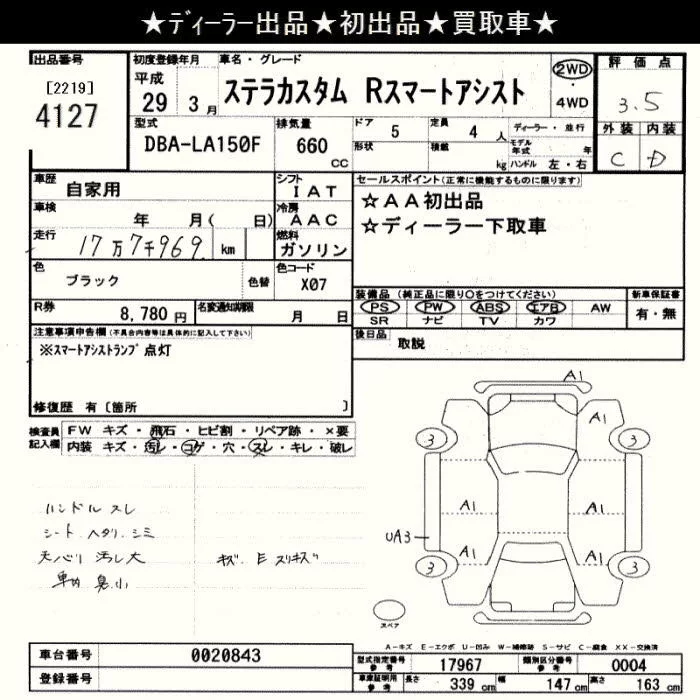 ★ディーラー出品★初出品★買取車★
出品番号
[2219]
4127
初度登録年月
平成
29 3月
車名・グレード
ステラカスタム Rスマートアシスト
2WD
・
4WD
評価点
3.5
外装 内装
C D
型式
DBA-LA150F
排気量
660
CC
ドア 5
定員 4 人
形状
積載 kg
ディーラー・並行
モデル年式 年
ハンドル 左・右
車歴
自家用
シフト
IAT
車検
年 月( 日)
冷房
AAC
走行
17万7千969 km
燃料
ガソリン
色
ブラック
色替
色コード
X07
R券
8,780円
名変通知期限
月 日
セールスポイント(正常に機能するものに限ります)
☆AA初出品
☆ディーラー下取車
装備品(純正品に限り○をつけてください)
PS PW ABS エアB AW
SR ナビ TV カワ
新車保証書
有・無
後日品
取説
注意事項申告欄(不具合内容等は具体的に記入して下さい)
※スマートアシストランプ点灯
修復歴 有〔箇所 〕
検査員記入欄
FW キズ・飛石・ヒビ割・リペア跡・×要
内装 キズ・汚レ・コゲ・穴・スレ・キレ・破レ
ハンドル スレ
シート ヘタリ、シミ
天バリ 汚レ大
車内 臭小
キズ、E スリキズ
A1
A1
3
3
A1
A1
UA3
A1
A1
3
3
スペア
A-キズ E-エクボ U-凹み W-補修跡 S-サビ C-腐食 XX-交換済
車台番号
0020843
登録番号
型式指定番号
参考
17967
類別区分番号
参考
0004
車庫証明用
参考
長さ 339cm
幅 147cm
高さ 163cm